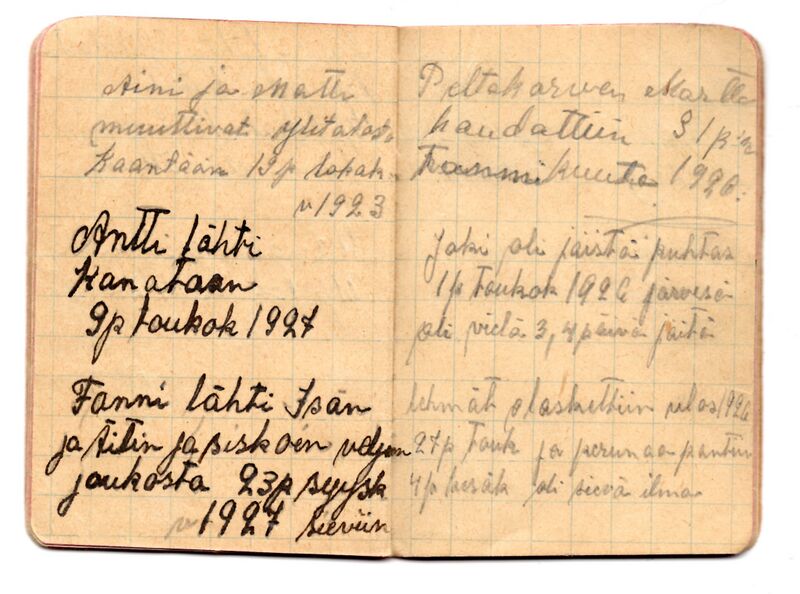 Aini ja Matti
muuttivat ylitalosta
Kaantään 19p lokak
v 1923
Antti lähti
Kanataan
9p toukok 1927
Fanni lähti Isän
ja Äitin ja siskoin veljien
joukosta 23p syysk
v 1927 Sieviin
Peltokorven Martta
haudattiin 31 p:nä
Tammikuuta 1926.
Joki oli jäistä puhtas
1p toukok 1926 järvesä
oli vielä 3, 4 päivä jäitä
lehmät plaskettiin ulos 1926
27p touk ja perunaa pantiin
4p kesäk oli sievä ilma